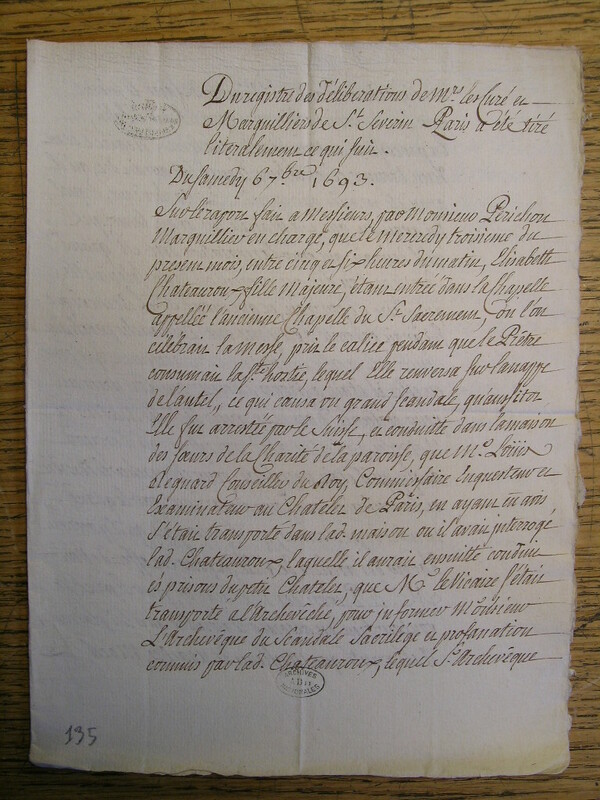 Du registre des délibérations de Mrs. les Curé et
Marguilliers de St. Severin Paris a été tiré
literalement ce qui suit.
Du Samedy 6 7.bre 1693.
Sur le raport fait a Messieurs, par Monsieur Périchon
Marguillier en charge, que le Mercredy troisieme du
present mois, entre cinq et six heures du matin, Elisabette
Chateauroux fille Majeure, étant entrée dans la Chapelle
appellée l'ancienne Chapelle du St. Sacrement, ou l'on
célébrait la messe, prit le calice pendant que le Prêtre
consumait la Ste. hostie, lequel Elle renversa sur la nappe
de l'autel, ce qui causa un grand scandale, qu'aussitot
Elle fut arrestée par le Suisse, et conduitte dans la maison
des sœurs de la Charité de la paroisse, que Me. Loüis
Regnard Conseiller du Roy, Commissaire Enquesteur et
Examinateur au Chatelet de Paris, en ayant eu avis
s'était transporté dans lad. maison ou il avait interrogé
lad. Chateauroux, laquelle il aurait ensuitte conduit
és prisons du petit Chatelet, que Mr. le Vicaire s'était
transporté a l'Archevêché, pour informer Monsieur
L'Archevêque du Scandale Sacrilège et profanation
commis par lad. Chateauroux, lequel Sr. Archevêque
ARCHIVES
NATIONALES
135